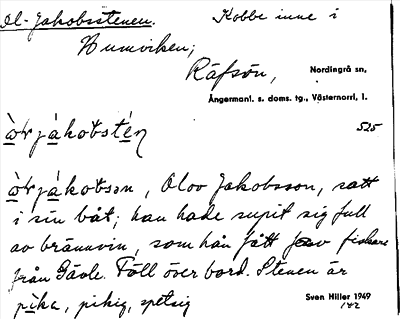 Ol-Jakobsstenen. Kobbe inne i
Numviken;
Räfsön, Nordingrå sn,
Ångermanl. s. doms. tg., Västernorrl, l.
525
òɽjàkobstén
òɽjàkobsən, Olov Jakobsson, satt
i sin båt; han hade supit sig full
av brännvin, som han fått av fiskare
från Gävle. Föll över bord. Stenen är
pika, pikig, spetsig
Sven Hiller 1949
142